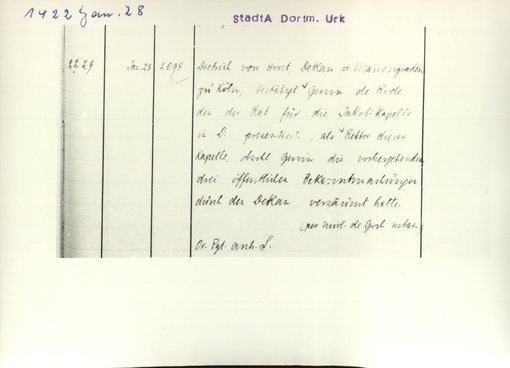 1422 Jan. 28
StadtA Dortm. Urk
2229 Jan. 28 2098 Dietrich von Horst, Dekan v. Mariengraden
zu Köln, bestätigt Gerwin de Rode
den der Rat für die Jakobikapelle
in D. präsentierte, als Rektor dieser
Kapelle, obwohl Gerwin die vorhergehenden
drei öffentlichen Bekanntmachungen
durch den Dekan versäumt hatte.
(per de notar.)
Or. Pgt. anh. S.